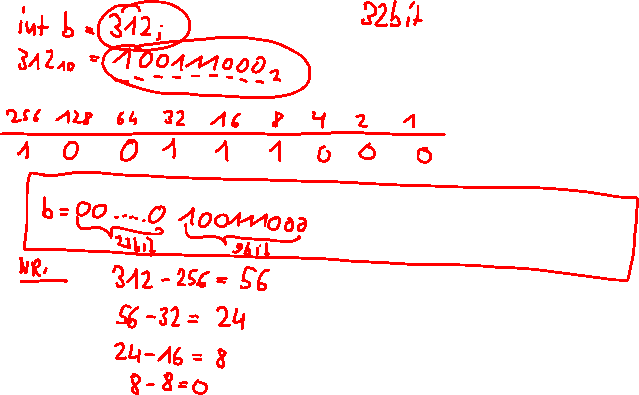 int b = 312; 32bit
312₁₀ = 100111000₂
256 128 64 32 16 8 4 2 1
1 0 0 1 1 1 0 0 0
b = 00.....0 100111000
23bit 9bit
NR.
312 - 256 = 56
56 - 32 = 24
24 - 16 = 8
8 - 8 = 0